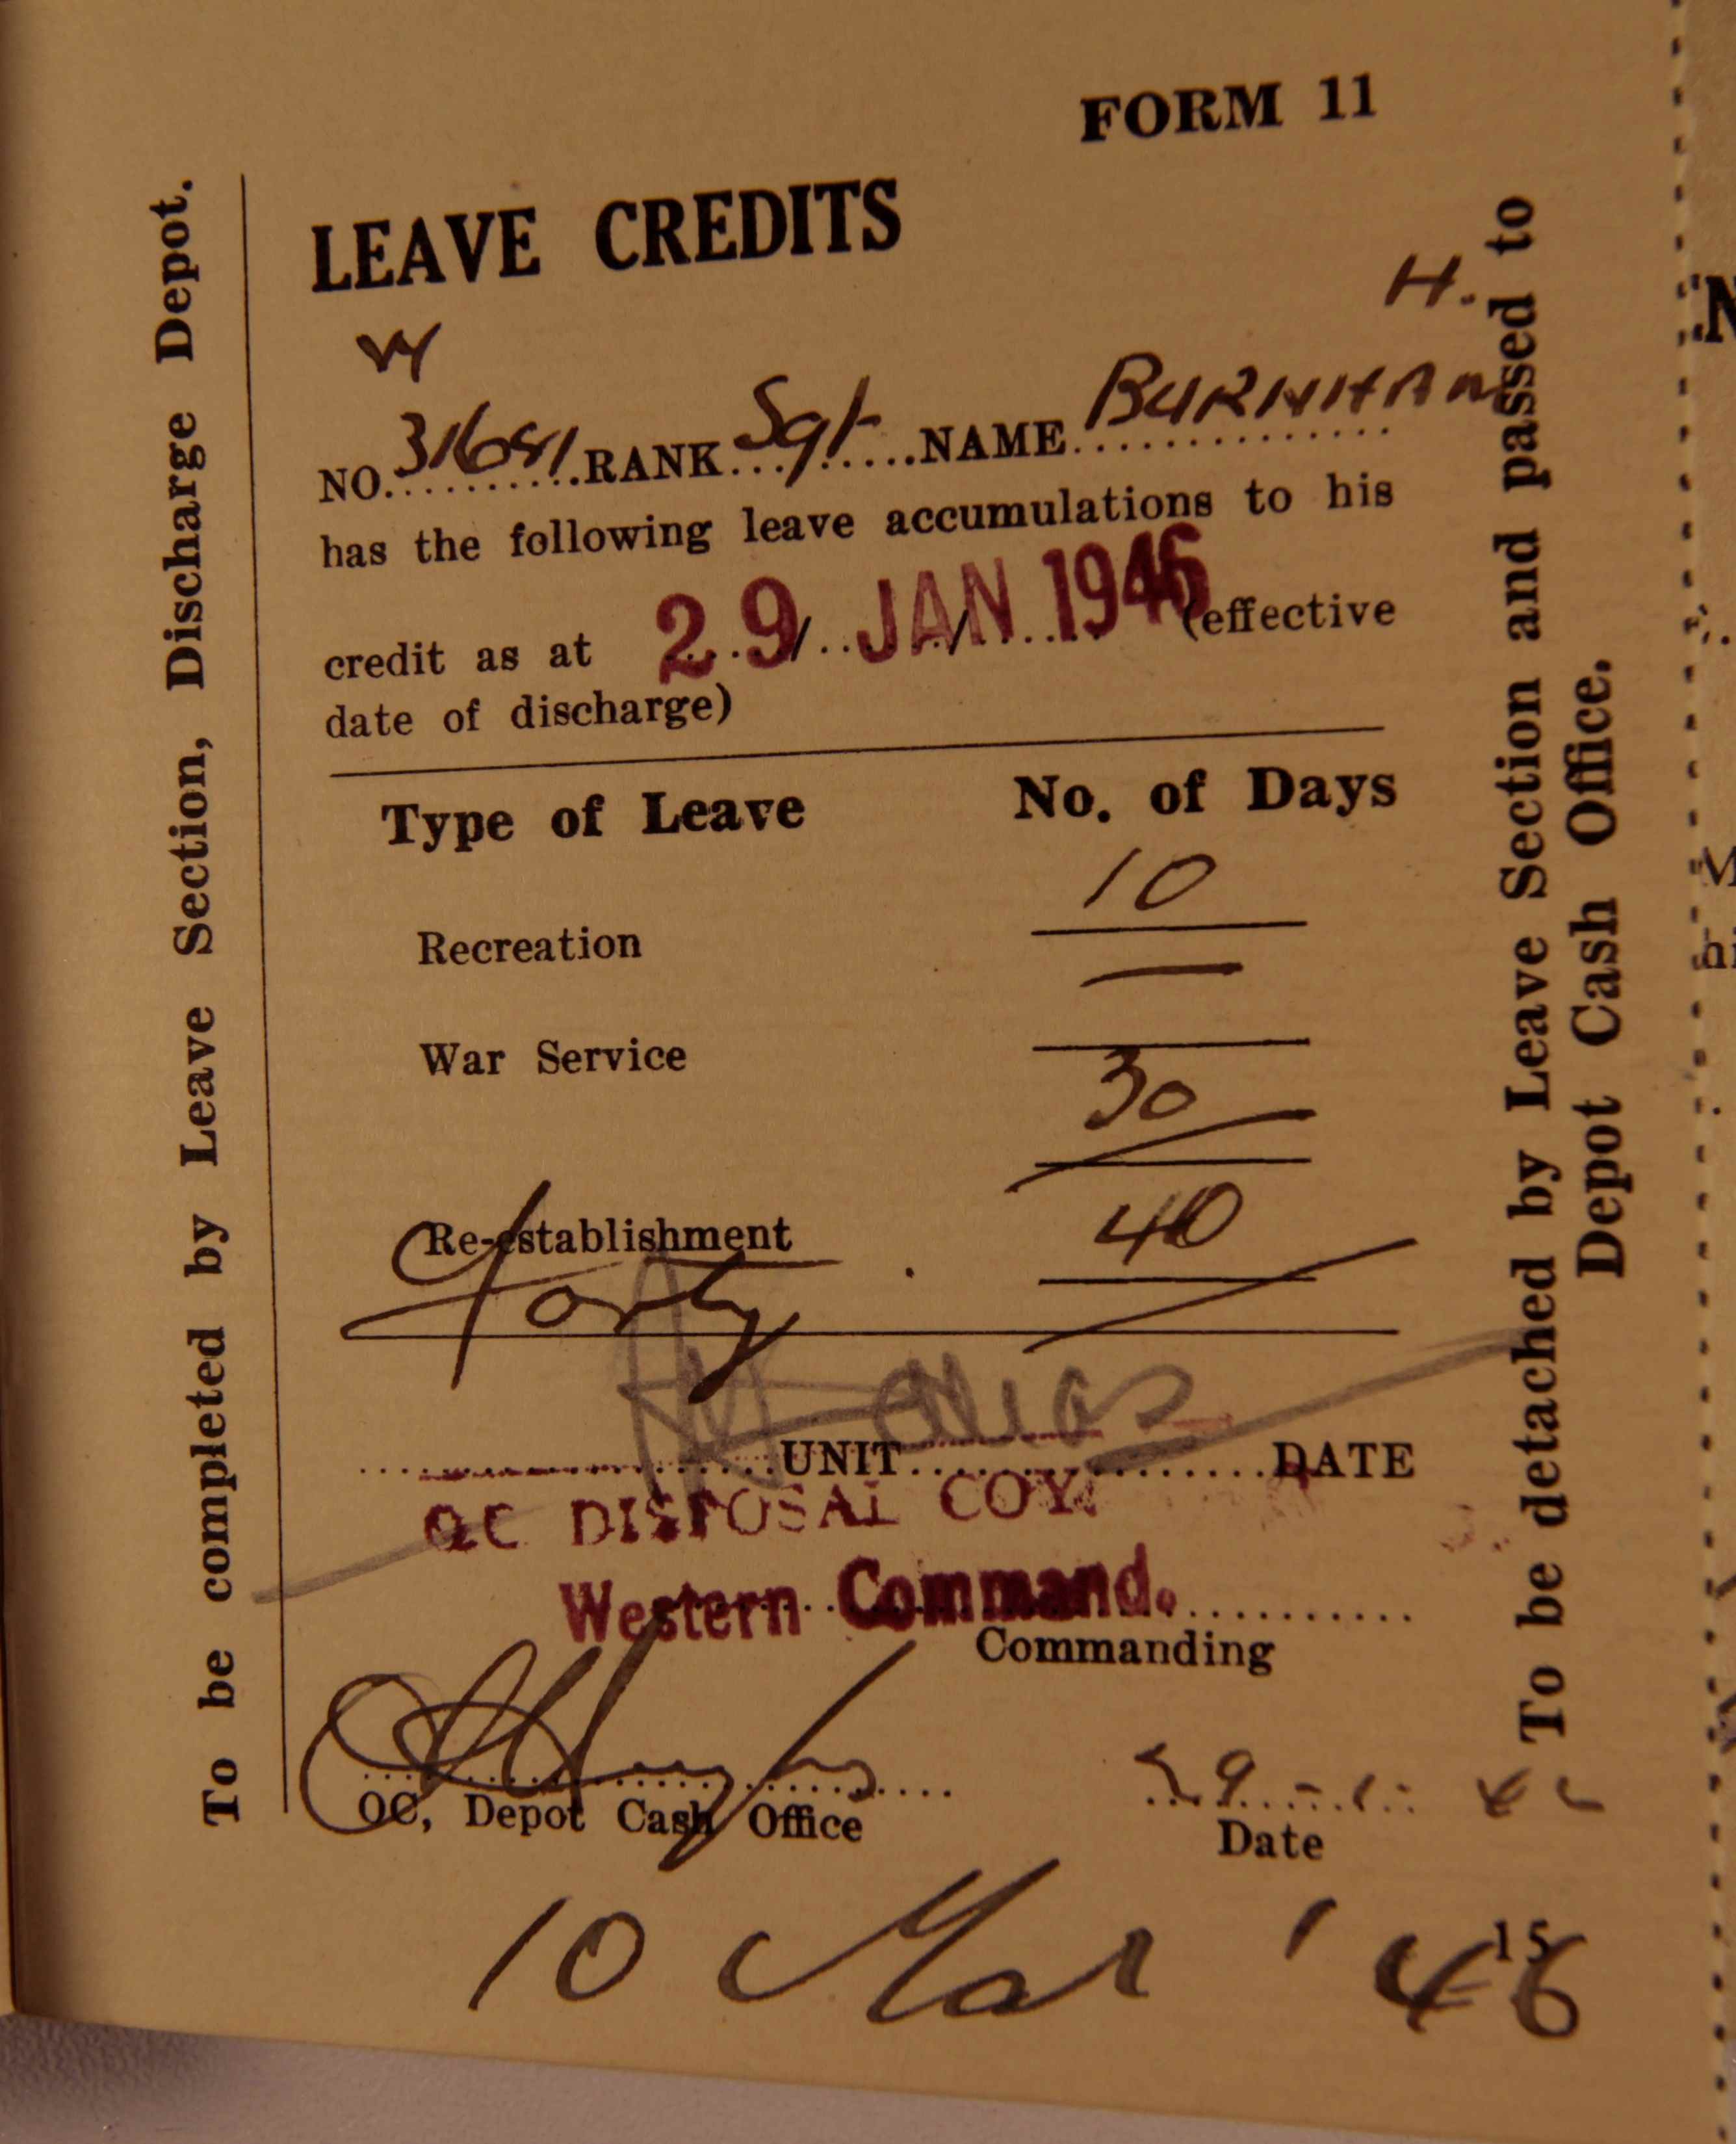 FORM 11
LEAVE CREDITS
H.
W
NO. 31681 RANK Sgt NAME BURNHAM
has the following leave accumulations to his
credit as at 29 JAN 1946 (effective
date of discharge)
Type of Leave No. of Days
Recreation 10
War Service —
Re-establishment 30
40
forty
UNIT DATE
OC DISPOSAL COY.
Western Command.
Commanding
29-1-46
OC, Depot Cash Office Date
10 Mar '46
15
To be completed by Leave Section, Discharge Depot.
To be detached by Leave Section and passed to
Depot Cash Office.